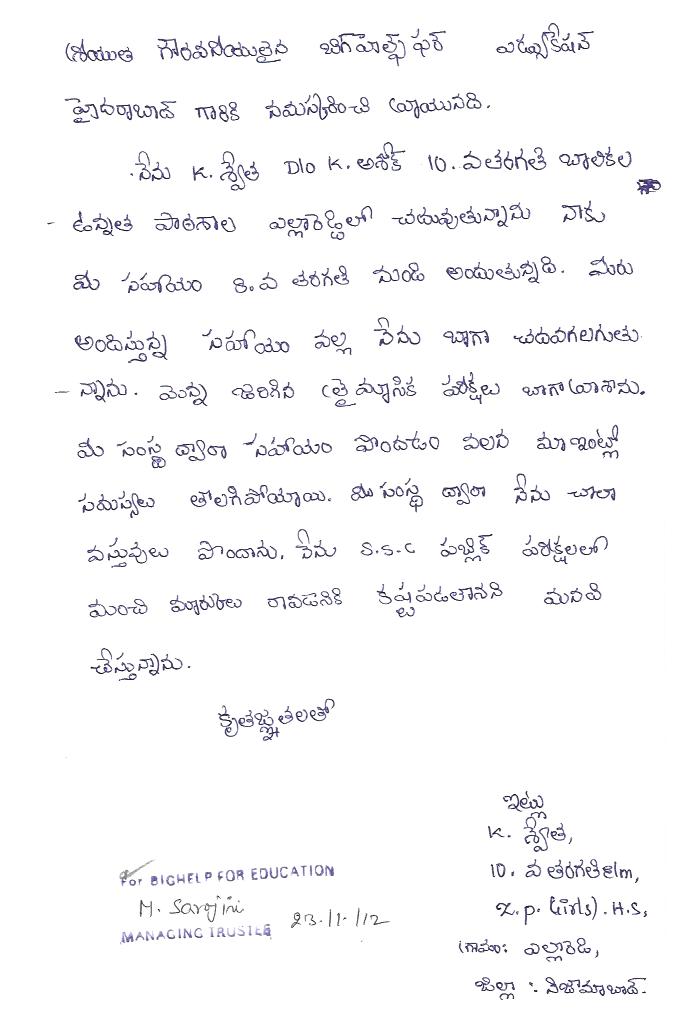 శ్రీయుత గౌరవనీయులైన బిగ్ హెల్ప్ ఫర్ ఎడ్యుకేషన్
హైదరాబాద్ గారికి నమస్కరించి వ్రాయునది.
నేను K. శ్వేత D/o K. అశోక్ 10. వ తరగతి బాలికల
- ఉన్నత పాఠశాల ఎల్లారెడ్డిలో చదువుతున్నాను నాకు
మీ సహాయం 8. వ తరగతి నుండి అందుతున్నది. మీరు
అందిస్తున్న సహాయం వల్ల నేను బాగా చదవగలుగుతు
- న్నాను. మొన్న జరిగిన త్రైమ్యాసిక పరీక్షలు బాగా వ్రాశాను.
మీ సంస్థ ద్వారా సహాయం పొందడం వలన మా ఇంట్లో
సమస్యలు తొలగిపోయాయి. మీ సంస్థ ద్వారా నేను చాలా
వస్తువులు పొందాను. నేను S.S.C పబ్లిక్ పరీక్షలలో
మంచి మార్కులు రావడానికి కష్టపడతానని మనవి
చేస్తున్నాను.
కృతజ్ఞతలతో
ఇట్లు
K. శ్వేత,
10. వ తరగతి E/m,
Z.P. (Girls). H.S,
గ్రామం: ఎల్లారెడి,
జిల్లా :- నిజామాబాద్.
For BIGHELP FOR EDUCATION
M. Sarojini
23/11/12
MANAGING TRUSTEE